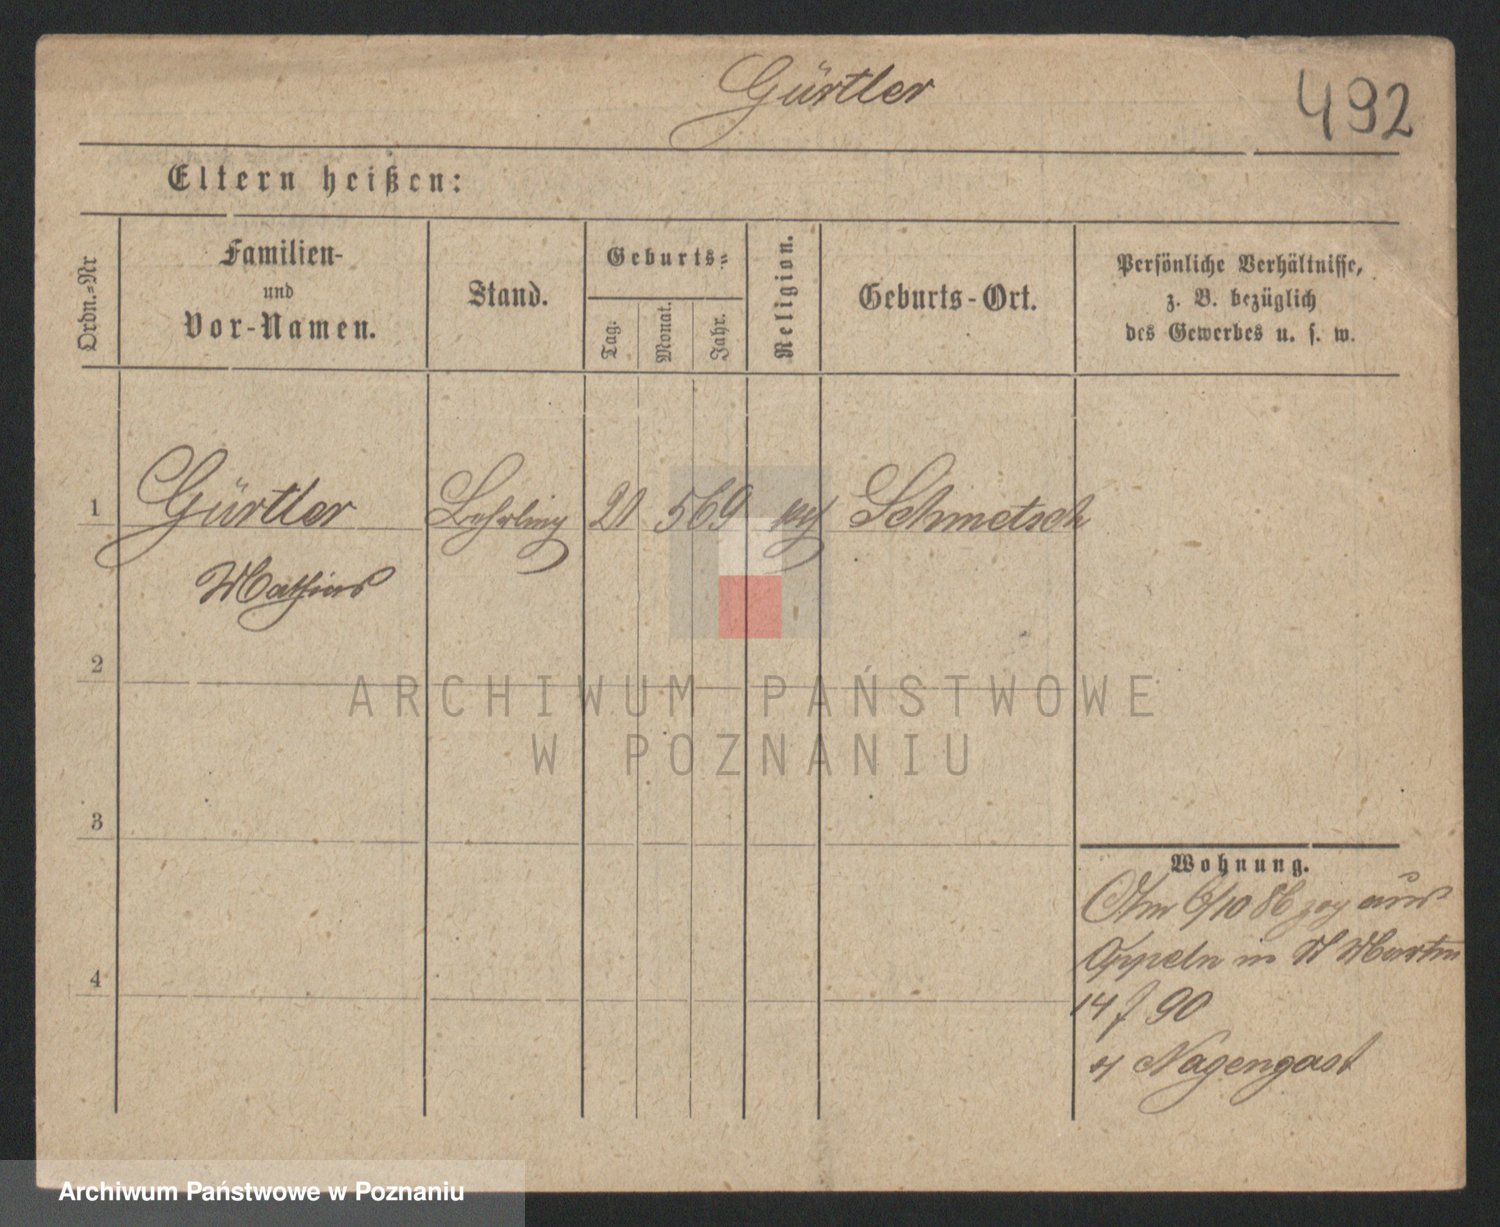 Gürtler
492
Eltern heißen:
Ordn.=Nr
Familien-
und
Vor-Namen.
Stand.
Geburts=
Tag.
Monat.
Jahr.
Religion.
Geburts-Ort.
Persönliche Verhältnisse,
z. B. bezüglich
des Gewerbes u. s. w.
1
Gürtler
Lehrling
21
5
69
Schmetsch
Mathias
2
ARCHIWUM PAŃSTWOWE
W POZNANIU
3
Wohnung.
Am 6/10 86 zog aus
Oppeln in St Martin
4
14 f 90
Nagengast
Archiwum Państwowe w Poznaniu